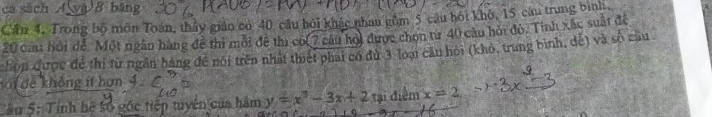 cả sách A và B bằng
Câu 4. Trong bộ môn Toán, thầy giáo có 40 câu hỏi khác nhau gồm 5 câu hỏi khó, 15 câu trung bình,
20 câu hỏi dễ. Một ngân hàng đề thi mỗi đề thi có 7 câu hỏi được chọn từ 40 câu hỏi đó. Tính xác suất để
chọn được đề thi từ ngân hàng đề nói trên nhất thiết phải có đủ 3 loại câu hỏi (khó, trung bình, dễ) và số câu
hỏi dễ không ít hơn 4.
Câu 5: Tính hệ số góc tiếp tuyến của hàm y = x³ − 3x + 2 tại điểm x = 2